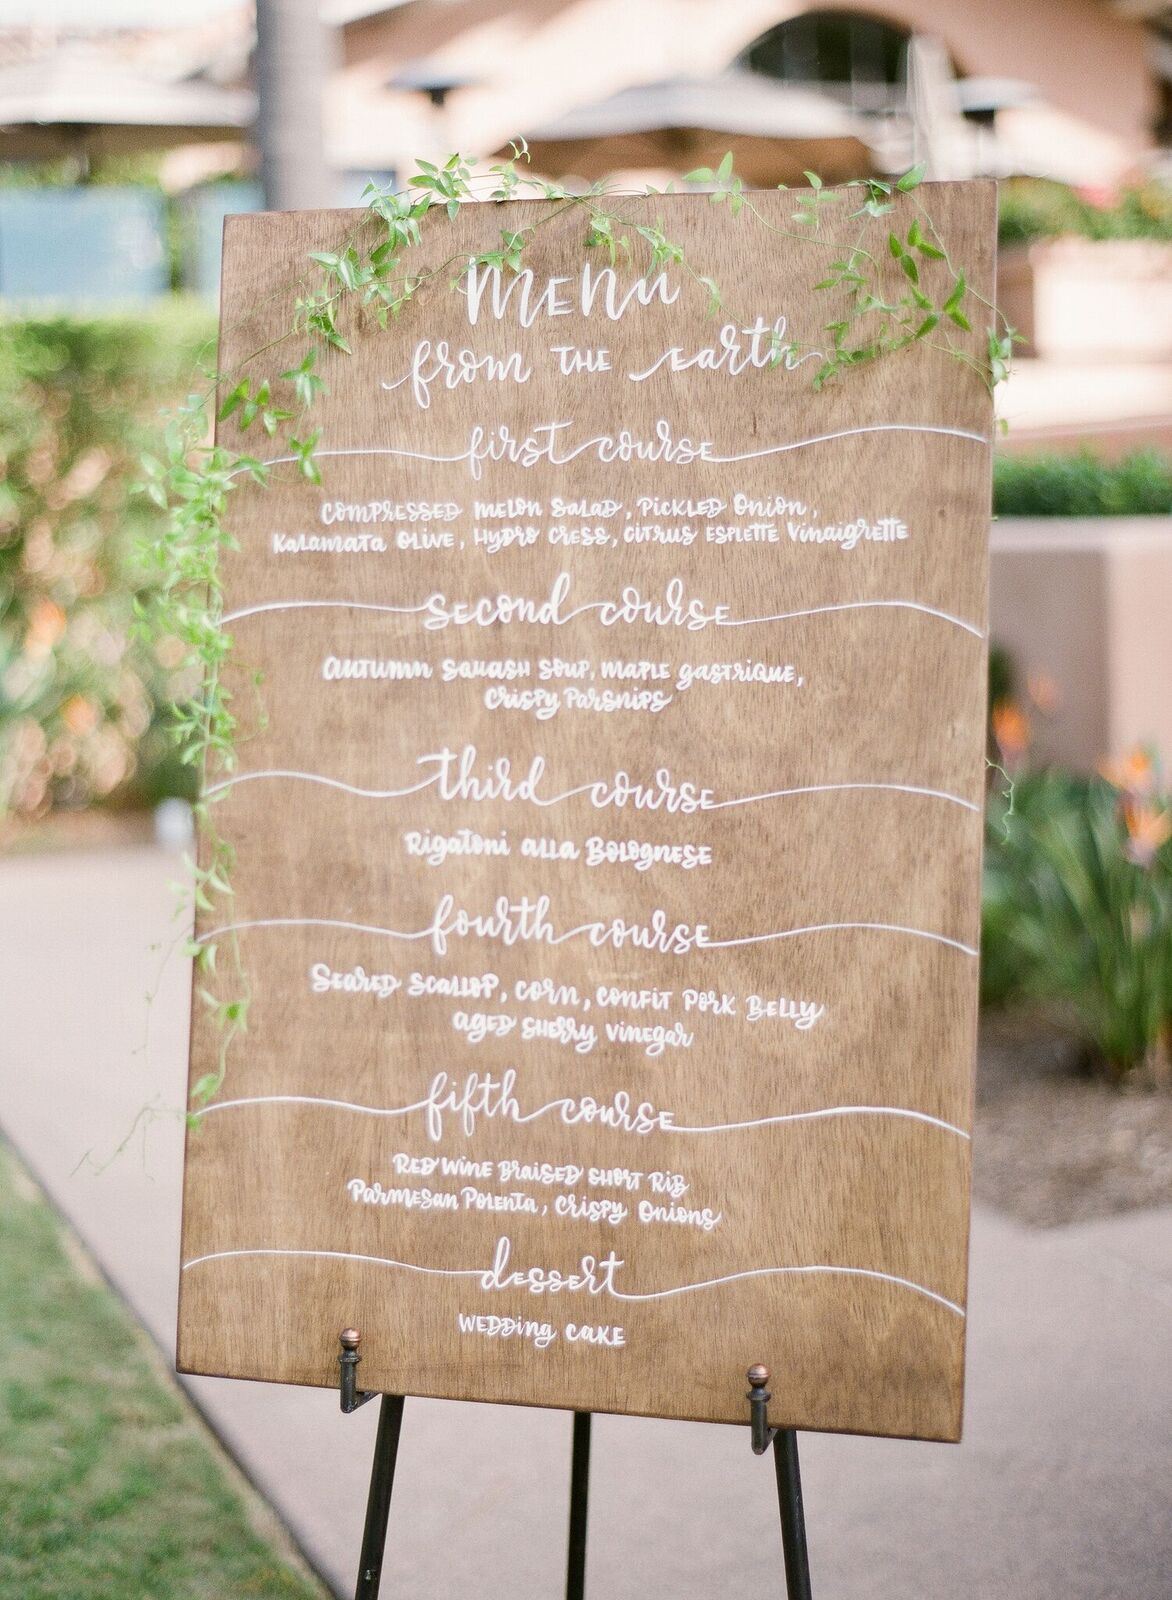 menu
from THE earth
first course
COMPRESSED MELON SALAD, PICKLED ONION,
Kalamata OLIVE, HYDRO CRESS, CITRUS ESPLETTE Vinaigrette
second course
AUTUMN SQUASH SOUP, MAPLE gastrique,
CRISPY PARSNIPS
third course
Rigatoni alla Bolognese
fourth course
Seared Scallop, corn, confit PORK BELLY
AGED SHERRY VINEGAR
fifth course
RED WINE BRAISED SHORT RIB
Parmesan Polenta, CRISPY Onions
dessert
WEDDING CAKE